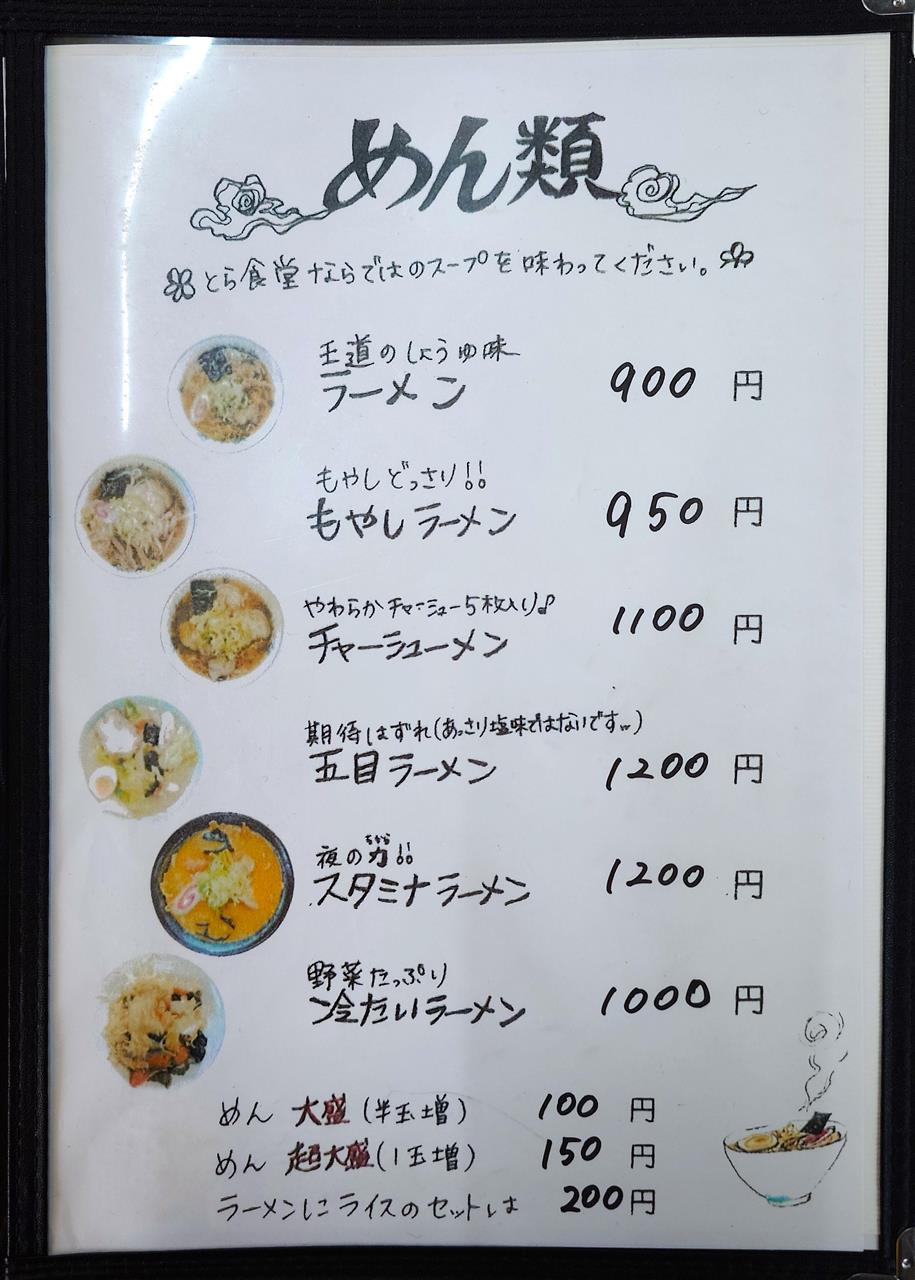 めん類
とら食堂ならではのスープを味わってください。
王道のしょうゆ味
ラーメン 900 円
もやしどっさり!!
もやしラーメン 950 円
やわらかチャーシュー5枚入り♪
チャーシューメン 1100 円
期待はずれ(あっさり塩味ではないですw)
五目ラーメン 1200 円
夜の力!! ちから
スタミナラーメン 1200 円
野菜たっぷり
冷たいラーメン 1000 円
めん 大盛(半玉増) 100 円
めん 超大盛(1玉増) 150 円
ラーメンにライスのセットは 200円